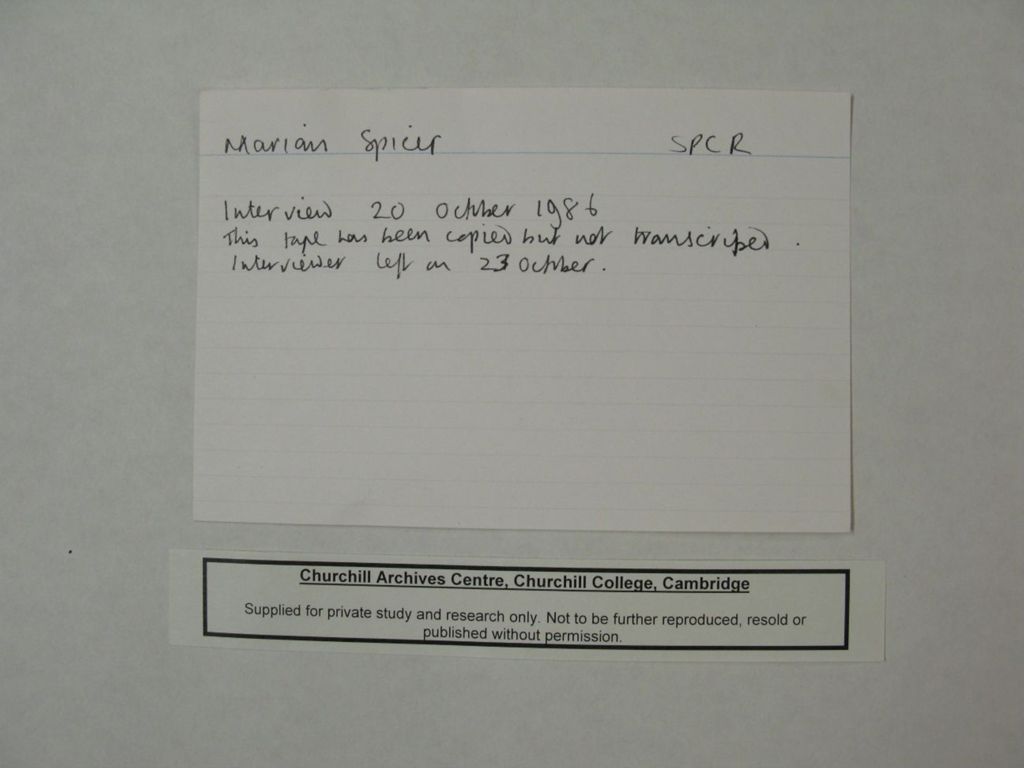 Marian Spicer SPCR
Interview 20 October 1986
This tape has been copied but not transcribed.
Interviewer left on 23 October.
Churchill Archives Centre, Churchill College, Cambridge
Supplied for private study and research only. Not to be further reproduced, resold or
published without permission.